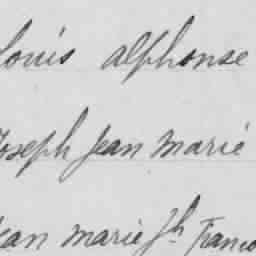 Louis alphonse
Joseph Jean Marie
Jean Marie Jh Franco